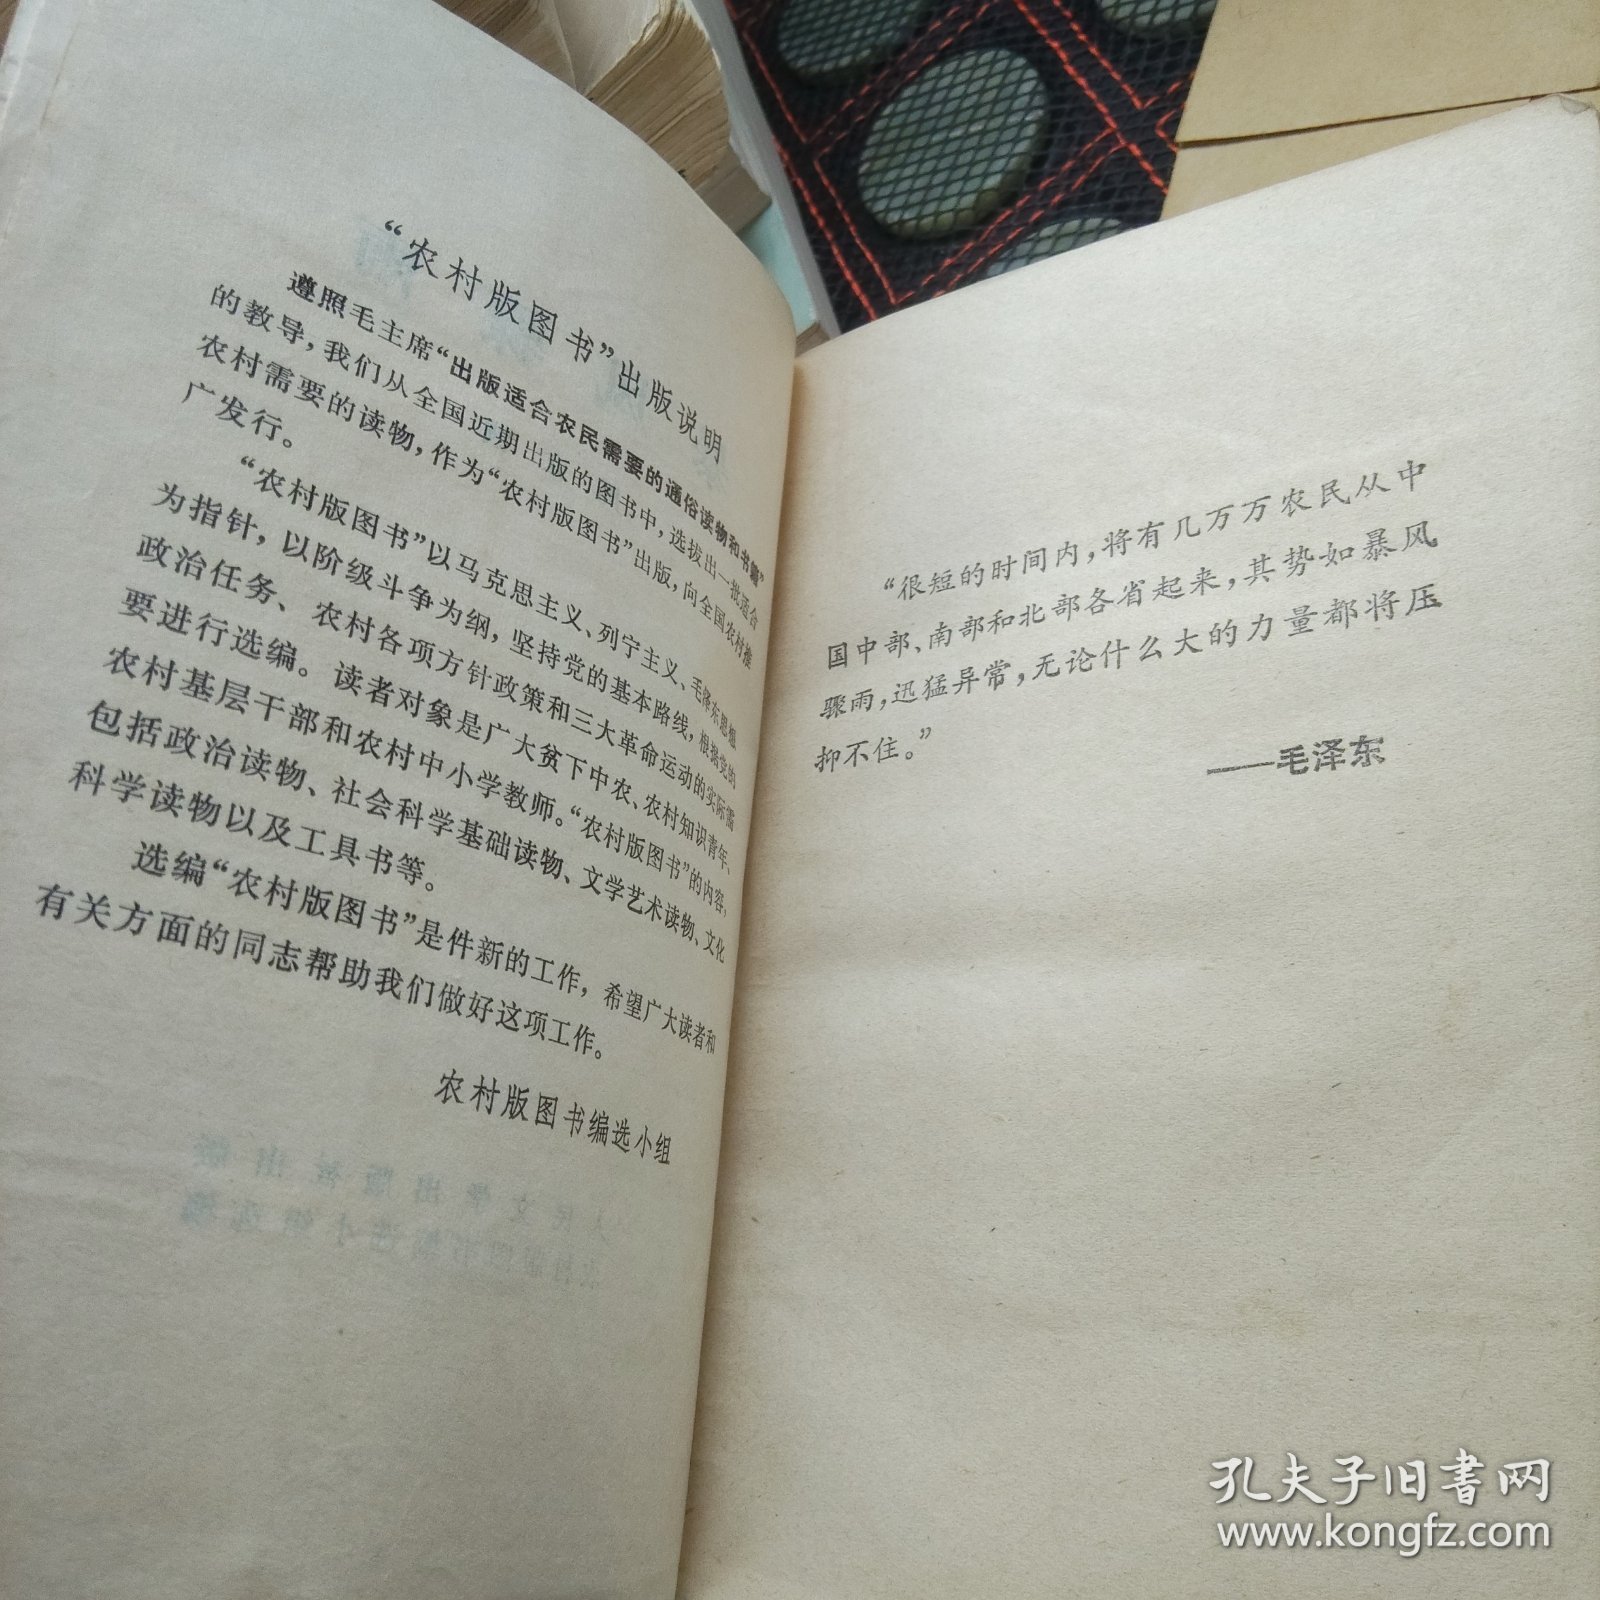 “农村版图书”出版说明
遵照毛主席“出版适合农民需要的通俗读物和书籍”
的教导，我们从全国近期出版的图书中，选拔出一批适合
农村需要的读物，作为“农村版图书”出版，向全国农村推
广发行。
“农村版图书”以马克思主义、列宁主义、毛泽东思想
为指针，以阶级斗争为纲，坚持党的基本路线，根据党的
政治任务、农村各项方针政策和三大革命运动的实际需
要进行选编。读者对象是广大贫下中农、农村知识青年、
农村基层干部和农村中小学教师。“农村版图书”的内容，
包括政治读物、社会科学基础读物、文学艺术读物、文化
科学读物以及工具书等。
选编“农村版图书”是件新的工作，希望广大读者和
有关方面的同志帮助我们做好这项工作。
农村版图书编选小组
“很短的时间内，将有几万万农民从中
国中部、南部和北部各省起来，其势如暴风
骤雨，迅猛异常，无论什么大的力量都将压
抑不住。”
——毛泽东
孔夫子旧书网
www.kongfz.com